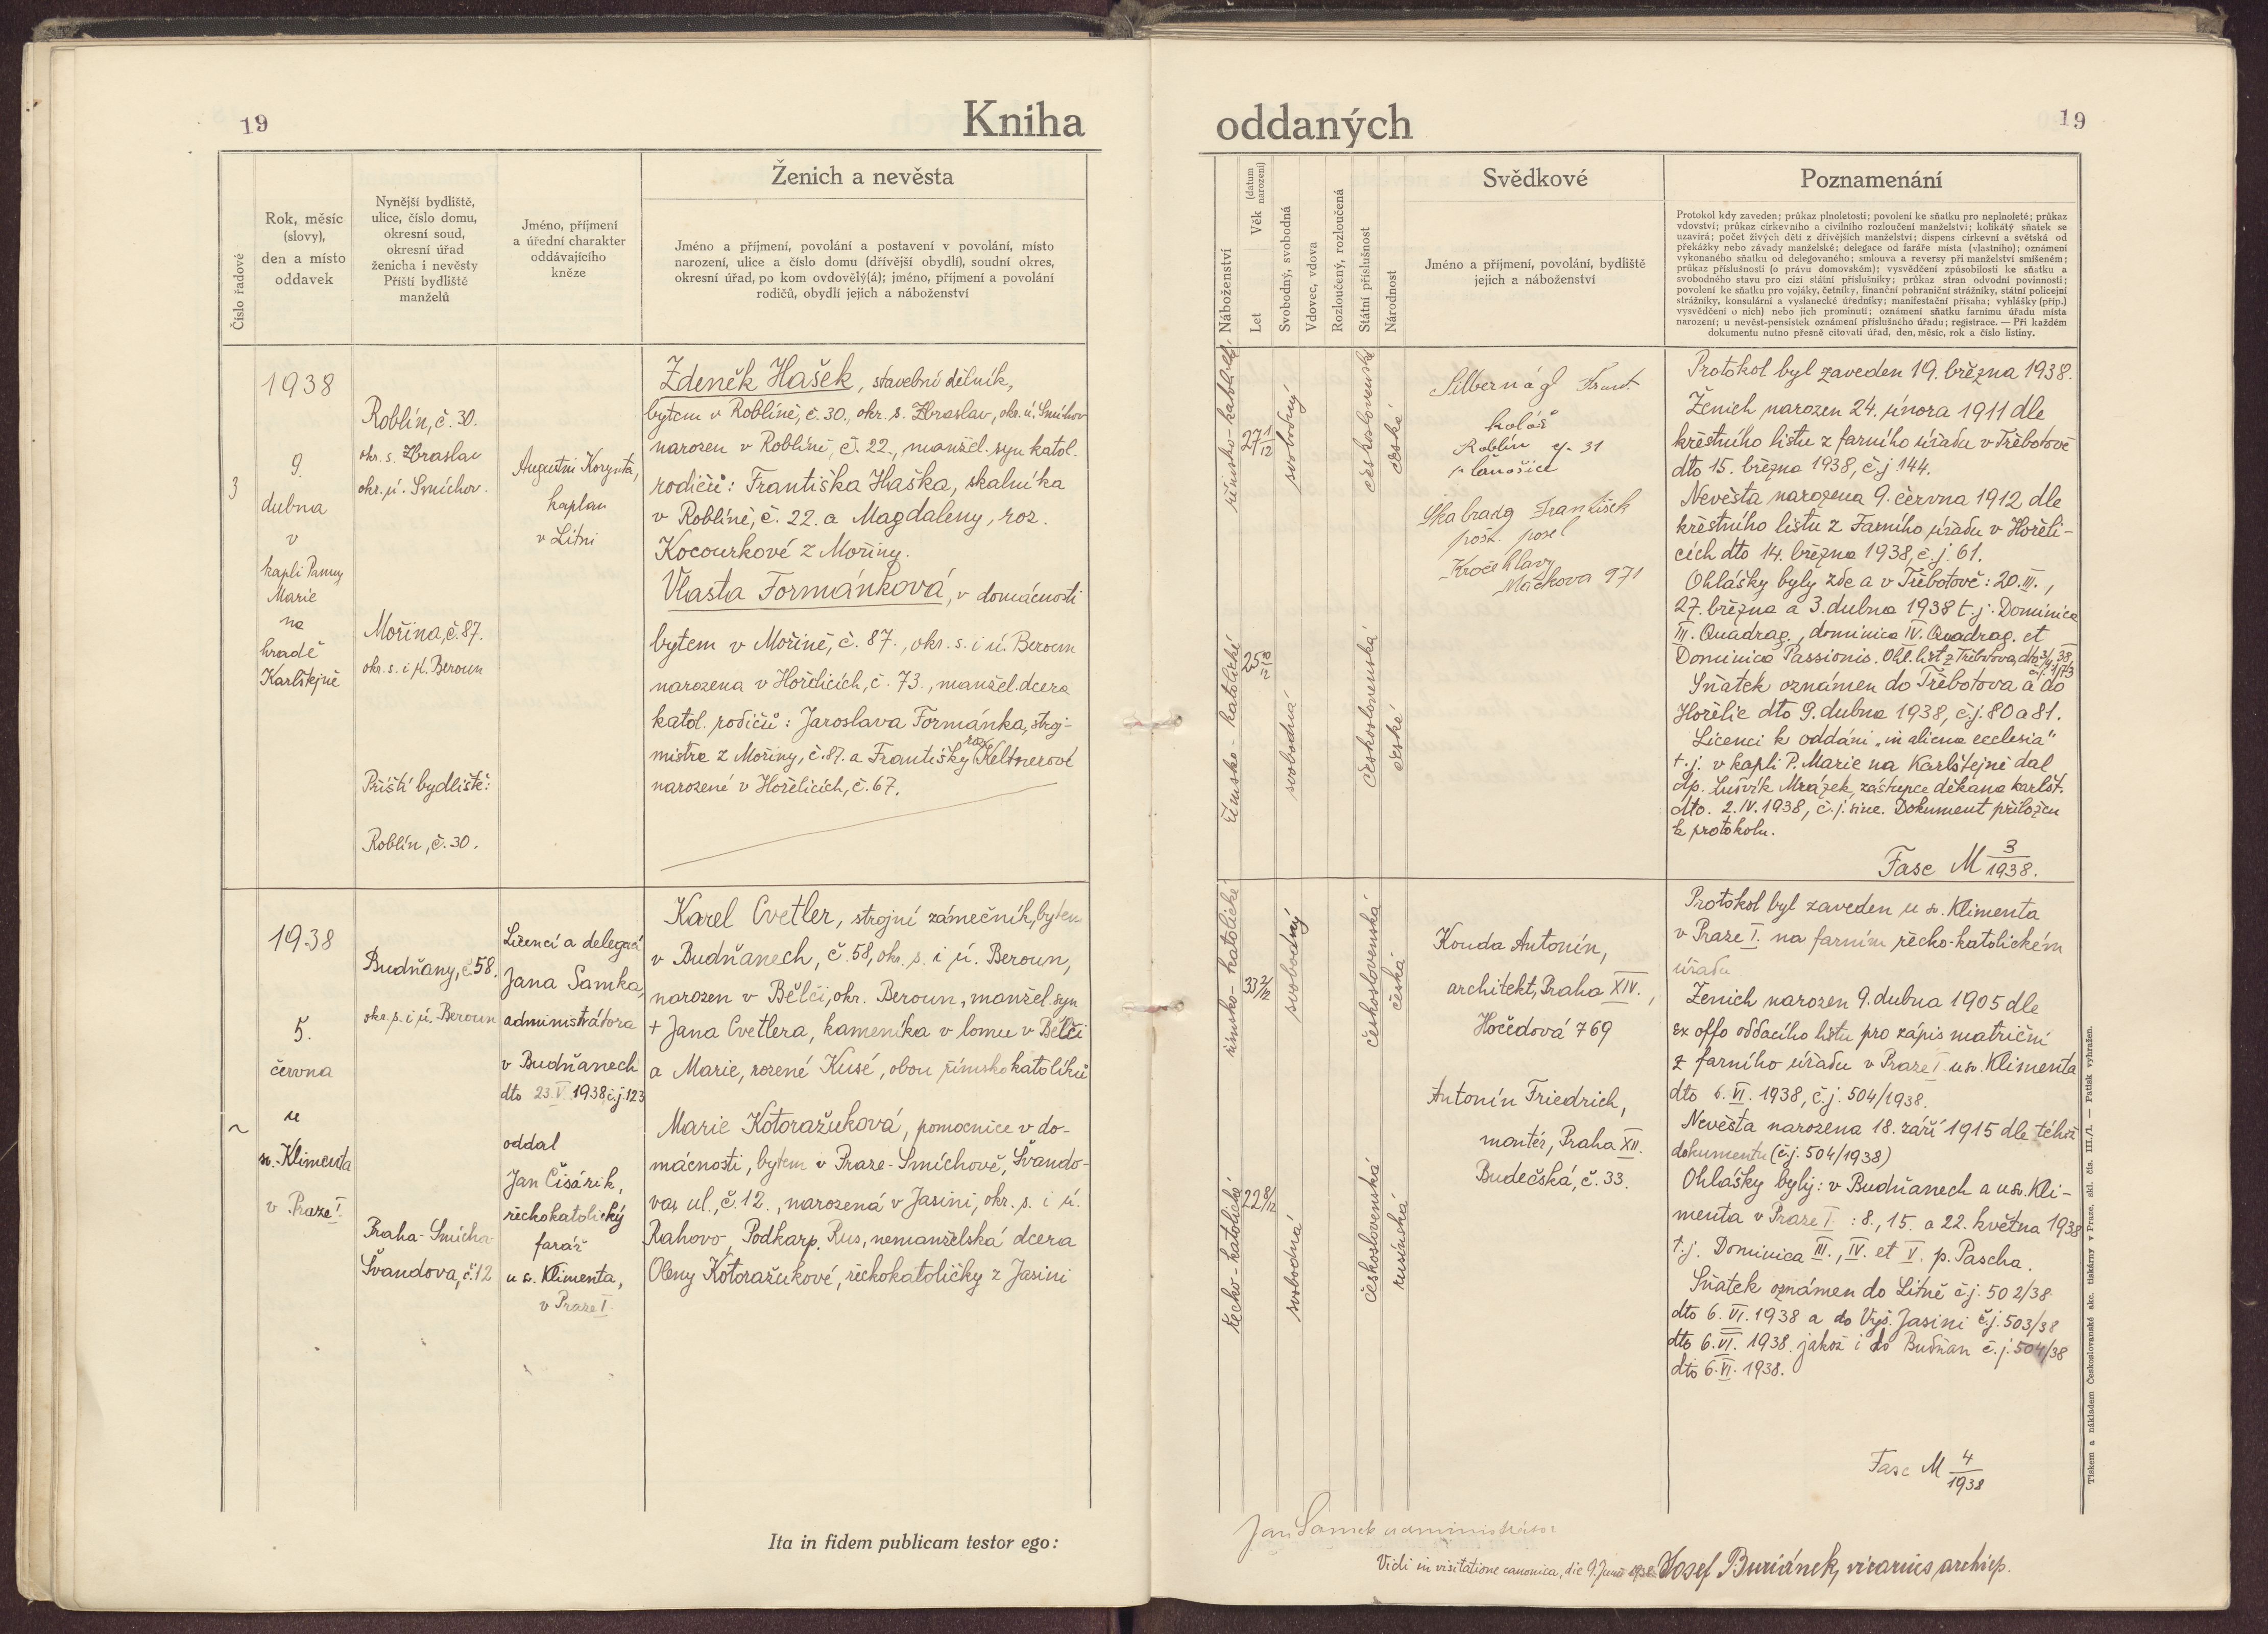 19
Kniha
Číslo řadové
Rok, měsíc
(slovy),
den a místo
oddavek
Nynější bydliště,
ulice, číslo domu,
okresní soud,
okresní úřad
ženicha i nevěsty
Příští bydliště
manželů
Jméno, příjmení
a úřední charakter
oddávajícího
kněze
Ženich a nevěsta
Jméno a příjmení, povolání a postavení v povolání, místo
narození, ulice a číslo domu (dřívější obydlí), soudní okres,
okresní úřad, po kom ovdovělý(á); jméno, příjmení a povolání
rodičů, obydlí jejich a náboženství
3
1938
9.
dubna
v
kapli Panny
Marie
na
hradě
Karlštejně
Roblín, č. 30.
okr. s. Zbraslav
okr. ú. Smíchov.
Mořina, č. 87.
okr. s. i ú. Beroun
Příští bydliště:
Roblín, č. 30.
Augustin Korynta,
kaplan
v Litni
Zdeněk Hašek, stavební dělník,
bytem v Roblíně, č. 30., okr. s. Zbraslav, okr. ú. Smíchov
narozen v Roblíně, č. 22., manžel. syn katol.
rodičů: Františka Haška, skalníka
v Roblíně, č. 22. a Magdaleny, roz.
Kocourkové z Mořiny.
Vlasta Formánková, v domácnosti
bytem v Mořině, č. 87., okr. s. i ú. Beroun
narozena v Hořelicích, č. 73., manžel. dcera
katol. rodičů: Jaroslava Formánka, stroj-
mistra z Mořiny, č. 87. a Františky roz. Keltnerové
narozené v Hořelicích, č. 67.
1938
5.
června
u
sv. Klimenta
v Praze I.
Budňany, č. 58.
okr. s. i ú. Beroun
Praha-Smíchov
Švandova, č. 12
Licencí a delegací
Jana Samka,
administrátora
v Budňanech
dto 23. V. 1938, č.j. 123
oddal
Jan Čišárik,
řeckokatolický
farář
u sv. Klimenta,
v Praze I.
Karel Cvetler, strojní zámečník, bytem
v Budňanech, č. 58, okr. s. i ú. Beroun,
narozen v Bělči, okr. Beroun, manžel. syn
+ Jana Cvetlera, kameníka v lomu v Bělči
a Marie, rozené Kusé, obou římskokatolíků
Marie Kotoražuková, pomocnice v do-
mácnosti, bytem v Praze-Smíchově, Švando-
va, ul., č. 12., narozená v Jasini, okr. s. i ú.
Rahovo, Podkarp. Rus, nemanželská dcera
Oleny Kotoražukové, řeckokatoličky z Jasini
Ita in fidem publicam testor ego:
oddaných
19
Náboženství
Let
Věk
(datum
narození)
Svobodný, svobodná
Vdovec, vdova
Rozloučený, rozloučená
Státní příslušnost
Národnost
Svědkové
Jméno a příjmení, povolání, bydliště
jejich a náboženství
Poznamenání
Protokol kdy zaveden; průkaz plnoletosti; povolení ke sňatku pro neplnoleté; průkaz
vdovství; průkaz církevního a civilního rozloučení manželství; kolikátý sňatek se
uzavírá; počet živých dětí z dřívějších manželství; dispens církevní a světská od
překážky nebo závady manželské; delegace od faráře místa (vlastního); oznámení
vykonaného sňatku od delegovaného; smlouva a reversy při manželství smíšeném;
průkaz příslušnosti (o právu domovském); vysvědčení způsobilosti ke sňatku a
svobodného stavu pro cizí státní příslušníky; průkaz stran odvodní povinnosti;
povolení ke sňatku pro vojáky, četníky, finanční pohraniční strážníky, státní policejní
strážníky, konsulární a vyslanecké úředníky; manifestační přísaha; vyhlášky (příp.)
vysvědčení o nich) nebo jich prominutí; oznámení sňatku farnímu úřadu místa
narození; u nevěst-pensistek oznámení příslušného úřadu; registrace. — Při každém
dokumentu nutno přesně citovati úřad, den, měsíc, rok a číslo listiny.
římsko-katolické
27 1/12
svobodný
československá
česká
římsko-katolické
25 10/12
svobodná
československá
česká
Silbernágl Frant.
kolář
Roblín čp. 31
František
pošt. posel
Kročehlavy
Máchova 971
Protokol byl zaveden 19. března 1938.
Ženich narozen 24. února 1911 dle
křestního listu z farního úřadu v Třebotově
dto 15. března 1938, č.j. 144.
Nevěsta narozena 9. června 1912 dle
křestního listu z Farního úřadu v Hořeli-
cích dto 14. března 1938, č. j. 61.
Ohlášky byly zde a v Třebotově: 20. III.,
27. března a 3. dubna 1938 t. j. Dominica
III. Quadrag., dominica IV. Quadrag. et
Dominica Passionis. Ohl. list z Třebotova, dto 3/4 38,
Sňatek oznámen do Třebotova a do
Hořelic dto 9. dubna 1938, č.j. 80 a 81.
Licenci k oddání „in aliena ecclesia"
t. j. v kapli P. Marie na Karlštejně dal
dp. Ludvík Mrázek, zástupce děkana karlšt.
dto. 2. IV. 1938, č. j. sine. Dokument přiložen
k protokolu.
Fasc M 3/1938.
římsko-katolické
33 2/12
svobodný
československá
česká
řecko-katolické
22 8/12
svobodná
československá
rusínská
Kouda Antonín,
architekt, Praha XIV.,
Hočedová 769
Antonín Friedrich,
montér, Praha XII.
Budečská, č. 33.
Protokol byl zaveden u sv. Klimenta
v Praze I. na farním řecko-katolickém
úřadu
Ženich narozen 9. dubna 1905 dle
ex offo oddacího listu pro zápis matriční
z farního úřadu v Praze I. u sv. Klimenta
dto 6. VI. 1938, č. j. 504/1938.
Nevěsta narozena 18. září 1915 dle téhož
dokumentu (č.j. 504/1938)
Ohlášky byly: v Budňanech a u sv. Kli-
menta v Praze I. : 8., 15. a 22. května 1938
t. j. Dominica III., IV. et V. p. Pascha.
Sňatek oznámen do Litně č.j. 502/38
dto 6. VI. 1938 a do Vyš. Jasini č.j. 503/38
dto 6. VI. 1938. jakož i do Budňan č. j. 504/38
dto 6. VI. 1938.
Fasc M 4/1938
Jan Samek administrátor
Vidi in visitatione canonica, die 9. Junii 1938. Josef Buriánek, vicarius archiep.
Tiskem a nákladem Československé akc. tiskárny v Praze, skl. čís. III./1. — Patisk vyhražen.